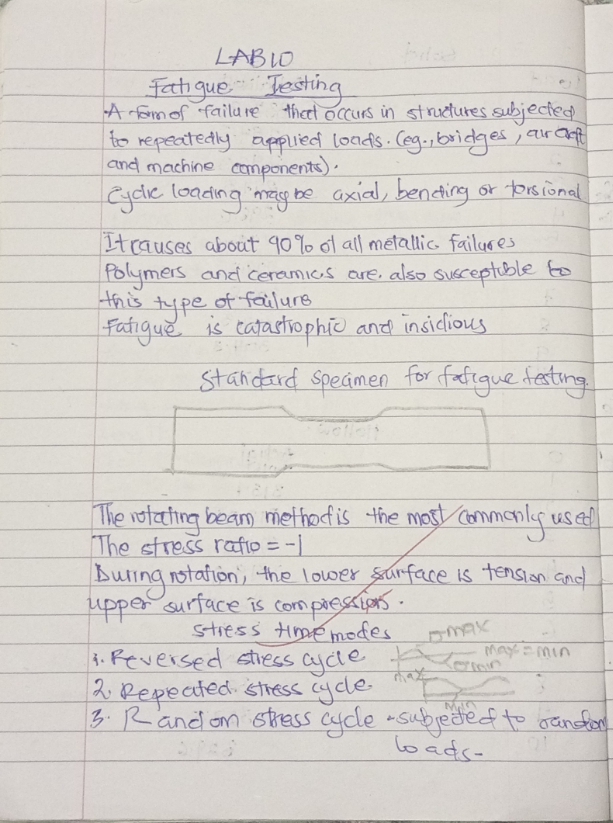 LAB 10
Fatigue Testing
A form of failure that occurs in structures subjected
to repeatedly applied loads. (eg., bridges, aircraft
and machine components).
Cyclic loading may be axial, bending or torsional
It causes about 90% of all metallic failures
Polymers and ceramics are also susceptible to
this type of failure
Fatigue is catastrophic and insidious
Standard specimen for fatigue testing.
The rotating beam method is the most commonly used
The stress ratio = -1
During rotation, the lower surface is tension and
upper surface is compression.
stress time modes
σmax
1. Reversed stress cycle
max = min
σmin
2. Repeated stress cycle
max
min
3. Random stress cycle - subjected to random
loads-